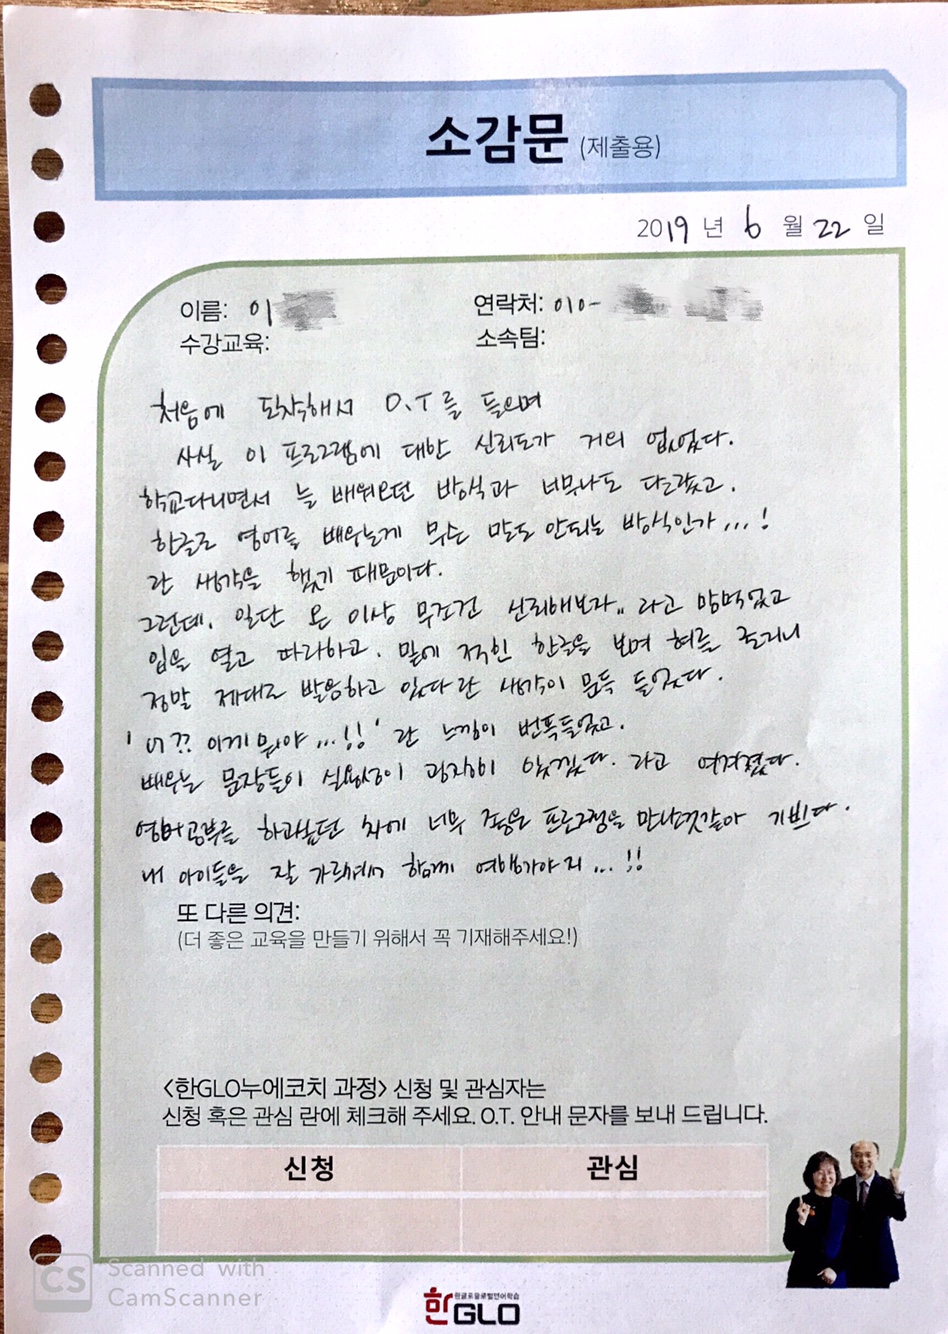 소감문 (제출용)
2019 년 6 월 22 일
이름: 이
연락처: 010-
수강교육:
소속팀:
처음에 도착해서 O.T를 들으며
사실 이 프로그램에 대한 신뢰도가 거의 없었다.
학교다니면서 늘 배워오던 방식과 너무나도 다르고,
한글로 영어를 배우는게 무슨 말도 안되는 방식인가...!
란 생각을 했기 때문이다.
그런데, 일단 온 이상 무조건 신뢰해보자.. 라고 맘먹었고
입을 열고 따라하고, 밑에 적힌 한글을 보며 혀를 굴리니
정말 제대로 발음하고 있다란 생각이 문득 들었다.
'어?? 이게 뭐야...!!' 란 느낌이 번뜩들었고,
배우는 문장들이 실용성이 굉장히 있겠다. 라고 여겨졌다.
영어공부를 하고싶던 차에 너무 좋은 프로그램을 만난것같아 기쁘다.
내 아이들을 잘 가르쳐서 함께 여행가야지...!!
또 다른 의견:
(더 좋은 교육을 만들기 위해서 꼭 기재해주세요!)
<한GLO누에코치 과정> 신청 및 관심자는
신청 혹은 관심 란에 체크해 주세요. O.T. 안내 문자를 보내 드립니다.
신청
관심
CS Scanned with
CamScanner
한GLO